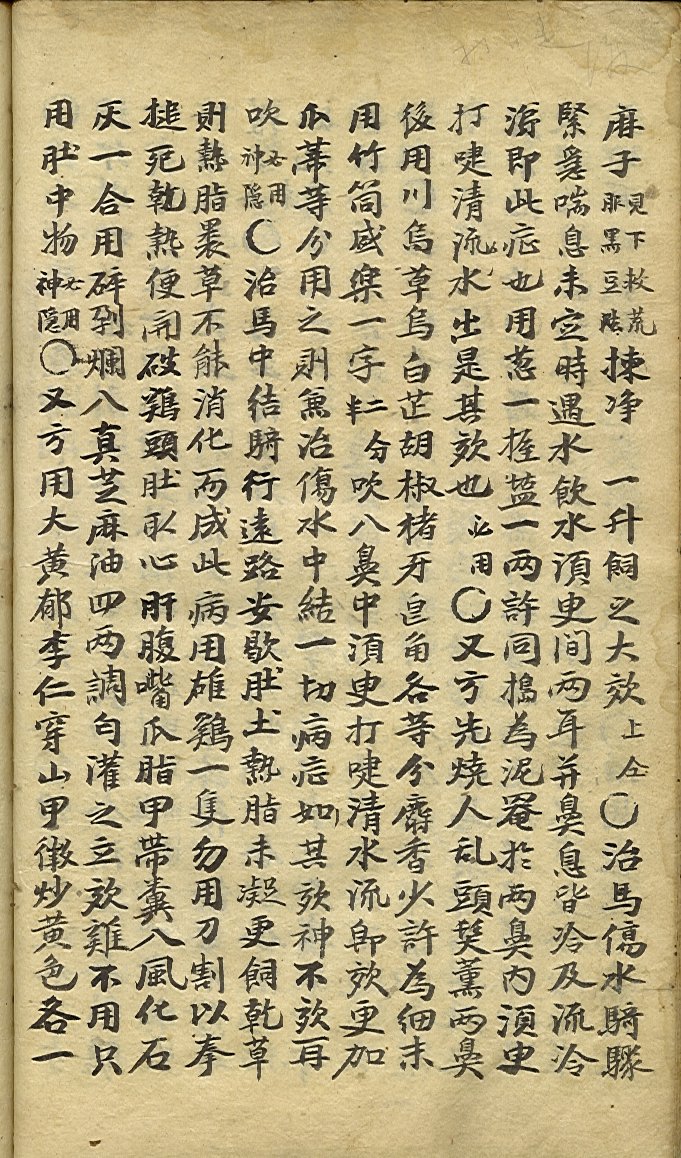 麻子見下救荒服黑豆法揀净 一升飼之大效上仝〇治馬傷水騎驟
緊急喘息未定時遇水飲水湏臾间两耳并鼻息皆冷及流冷
涕即此症也用葱一握盐一两許同搗為泥罨扵两鼻内湏臾
打啑清流水出是其效也必用〇又方先燒人乱頭髮薰两鼻
後用川烏草烏白芷胡椒楮牙皀角各等分麝香少許為细末
用竹筒盛藥一字半二分吹八鼻中湏臾打啑清水流卽效更加
瓜蒂等分用之則兼治傷水中結一切病症如其效神不效再
吹必用神隠〇治馬中结騎行遠路安歇肚土熱脂未凝更飼乾草
則熱脂裹草不能消化而成此病用雄鷄一隻勿用刀割以拳
搥死乾熱便開破鷄頭肚取心肝腹嘴瓜脂甲帶糞八風化石
灰一合用碎剁爛八真芝麻油四两調匀灌之立效雞不用只
用肚中物必用神隠〇又方用大黄郁李仁穿山甲微炒黄色各一